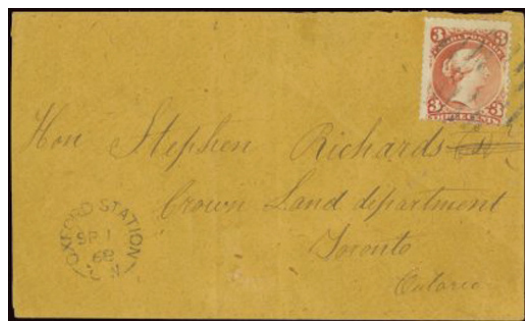 3 CANADA POSTAGE 3
3 THREE CENTS 3
Hon Stephen Richards
Crown Land department
Toronto
Ontario
OXFORD STATION
SP 1
68
C.W.